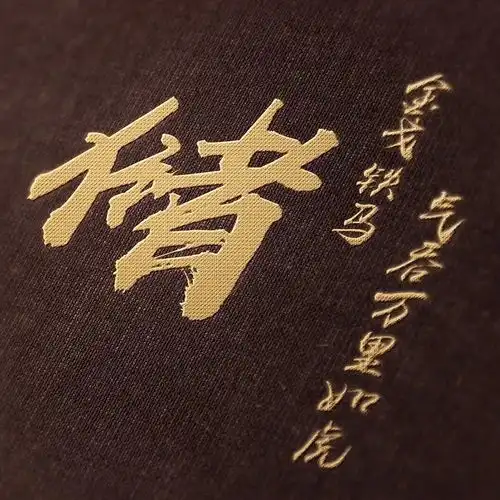 猪
金戈铁马
气吞万里如虎